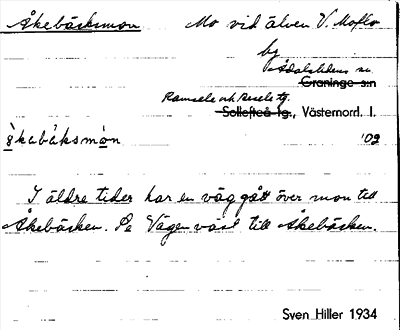 Åkebäcksmon Mo vid älven V. Moflo
by
Ådalslidens sn
Graninge s:n
Ramsele och Resele tg.
Sollefteå tg., Västernord. l.
åkabäksmón '09
I äldre tider har en väg gått över mon till
Åkebäcken. Se Vägen väst till Åkebäcken.
Sven Hiller 1934